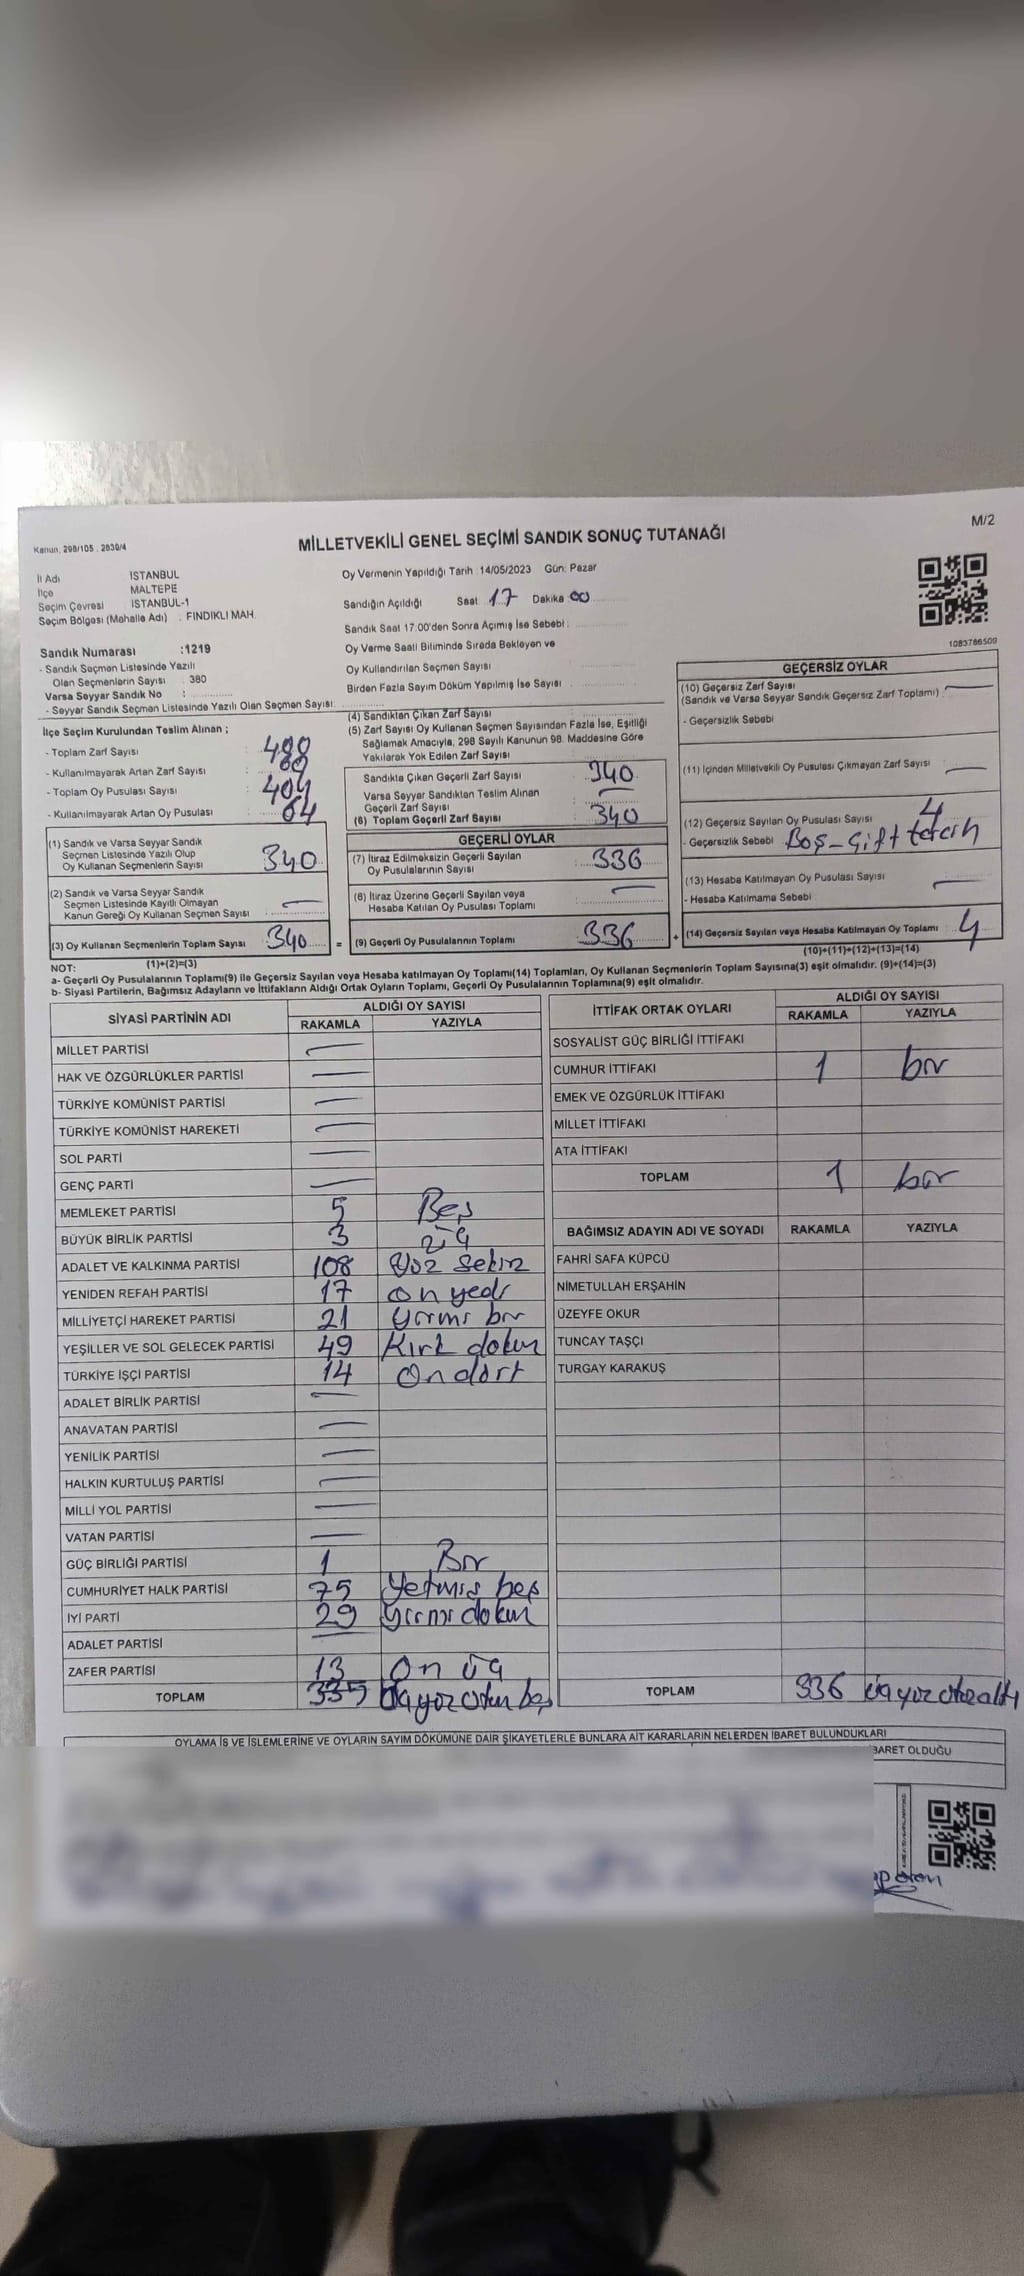 M/2
Kanun, 298/105 , 2839/4
MİLLETVEKİLİ GENEL SEÇİMİ SANDIK SONUÇ TUTANAĞI
İl Adı İSTANBUL
İlçe MALTEPE
Seçim Çevresi İSTANBUL-1
Seçim Bölgesi (Mahalle Adı) : FINDIKLI MAH.
Oy Vermenin Yapıldığı Tarih :14/05/2023 Gün: Pazar
Sandığın Açıldığı Saat 17 Dakika 00
Sandık Saat 17:00'den Sonra Açımış İse Sebebi :
Oy Verme Saati Bitiminde Sırada Bekleyen ve
Oy Kullandırılan Seçmen Sayısı :
Birden Fazla Sayım Döküm Yapılmış İse Sayısı :
1083786509
Sandık Numarası :1219
- Sandık Seçmen Listesinde Yazılı
Olan Seçmenlerin Sayısı : 380
Varsa Seyyar Sandık No :
- Seyyar Sandık Seçmen Listesinde Yazılı Olan Seçmen Sayısı:
İlçe Seçim Kurulundan Teslim Alınan ;
- Toplam Zarf Sayısı :
- Kullanılmayarak Artan Zarf Sayısı :
- Toplam Oy Pusulası Sayısı : 404
- Kullanılmayarak Artan Oy Pusulası : 64
(1) Sandık ve Varsa Seyyar Sandık
Seçmen Listesinde Yazılı Olup
Oy Kullanan Seçmenlerin Sayısı 340
(2) Sandık ve Varsa Seyyar Sandık
Seçmen Listesinde Kayıtlı Olmayan
Kanun Gereği Oy Kullanan Seçmen Sayısı : —
(3) Oy Kullanan Seçmenlerin Toplam Sayısı 340 =
(1)+(2)=(3)
(4) Sandıktan Çıkan Zarf Sayısı :
(5) Zarf Sayısı Oy Kullanan Seçmen Sayısından Fazla İse, Eşitliği
Sağlamak Amacıyla, 298 Sayılı Kanunun 98. Maddesine Göre
Yakılarak Yok Edilen Zarf Sayısı :
Sandıkta Çıkan Geçerli Zarf Sayısı : 340
Varsa Seyyar Sandıktan Teslim Alınan
Geçerli Zarf Sayısı : —
(6) Toplam Geçerli Zarf Sayısı : 340
GEÇERLİ OYLAR
(7) İtiraz Edilmeksizin Geçerli Sayılan
Oy Pusulalarının Sayısı : 336
(8) İtiraz Üzerine Geçerli Sayılan veya
Hesaba Katılan Oy Pusulası Toplamı : —
(9) Geçerli Oy Pusulalarının Toplamı : 336 +
GEÇERSİZ OYLAR
(10) Geçersiz Zarf Sayısı
(Sandık ve Varsa Seyyar Sandık Geçersiz Zarf Toplamı) : —
- Geçersizlik Sebebi
(11) İçinden Milletvekili Oy Pusulası Çıkmayan Zarf Sayısı : —
(12) Geçersiz Sayılan Oy Pusulası Sayısı : 4
- Geçersizlik Sebebi Boş - çift tercih
(13) Hesaba Katılmayan Oy Pusulası Sayısı : —
- Hesaba Katılmama Sebebi
(14) Geçersiz Sayılan veya Hesaba Katılmayan Oy Toplamı : 4
(10)+(11)+(12)+(13)=(14)
NOT:
a- Geçerli Oy Pusulalarının Toplamı(9) ile Geçersiz Sayılan veya Hesaba katılmayan Oy Toplamı(14) Toplamları, Oy Kullanan Seçmenlerin Toplam Sayısına(3) eşit olmalıdır. (9)+(14)=(3)
b- Siyasi Partilerin, Bağımsız Adayların ve İttifakların Aldığı Ortak Oyların Toplamı, Geçerli Oy Pusulalarının Toplamına(9) eşit olmalıdır.
SİYASİ PARTİNİN ADI ALDIĞI OY SAYISI
RAKAMLA YAZIYLA
MİLLET PARTİSİ —
HAK VE ÖZGÜRLÜKLER PARTİSİ —
TÜRKİYE KOMÜNİST PARTİSİ —
TÜRKİYE KOMÜNİST HAREKETİ —
SOL PARTİ —
GENÇ PARTİ —
MEMLEKET PARTİSİ 5 Beş
BÜYÜK BİRLİK PARTİSİ 3 üç
ADALET VE KALKINMA PARTİSİ 108 Yüz sekiz
YENİDEN REFAH PARTİSİ 17 on yedi
MİLLİYETÇİ HAREKET PARTİSİ 21 yirmi bir
YEŞİLLER VE SOL GELECEK PARTİSİ 49 Kırk dokuz
TÜRKİYE İŞÇİ PARTİSİ 14 Ondört
ADALET BİRLİK PARTİSİ —
ANAVATAN PARTİSİ —
YENİLİK PARTİSİ —
HALKIN KURTULUŞ PARTİSİ —
MİLLİ YOL PARTİSİ —
VATAN PARTİSİ —
GÜÇ BİRLİĞİ PARTİSİ 1 Bir
CUMHURİYET HALK PARTİSİ 75 Yetmiş beş
İYİ PARTİ 29 yirmi dokuz
ADALET PARTİSİ —
ZAFER PARTİSİ 13 On üç
TOPLAM 335 üçyüz otuz beş
İTTİFAK ORTAK OYLARI ALDIĞI OY SAYISI
RAKAMLA YAZIYLA
SOSYALİST GÜÇ BİRLİĞİ İTTİFAKI
CUMHUR İTTİFAKI 1 bir
EMEK VE ÖZGÜRLÜK İTTİFAKI
MİLLET İTTİFAKI
ATA İTTİFAKI
TOPLAM 1 bir
BAĞIMSIZ ADAYIN ADI VE SOYADI RAKAMLA YAZIYLA
FAHRİ SAFA KÜPCÜ
NİMETULLAH ERŞAHİN
ÜZEYFE OKUR
TUNCAY TAŞÇI
TURGAY KARAKUŞ
TOPLAM 336 üçyüz otuzaltı
OYLAMA İŞ VE İŞLEMLERİNE VE OYLARIN SAYIM DÖKÜMÜNE DAİR ŞİKAYETLERLE BUNLARA AİT KARARLARIN NELERDEN İBARET BULUNDUKLARI
İBARET OLDUĞU